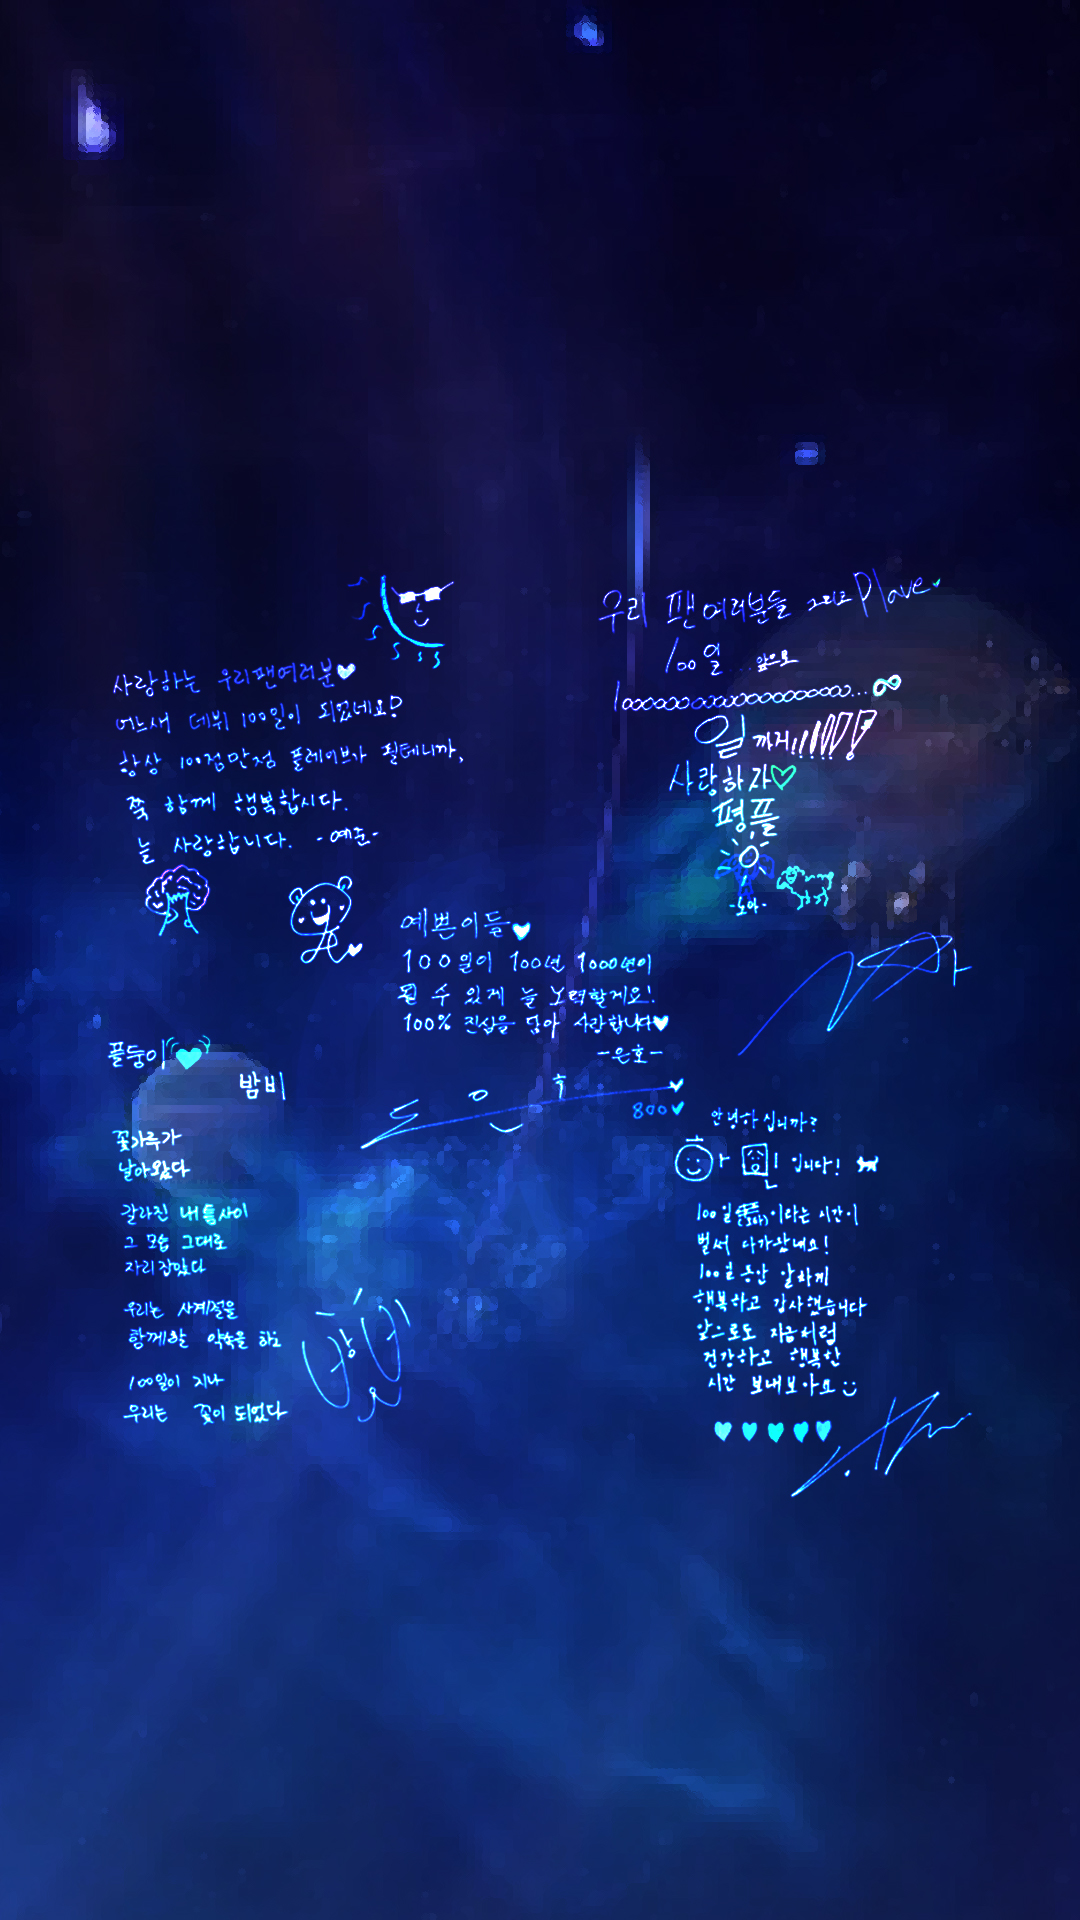 사랑하는 우리팬여러분♥
어느새 데뷔 100일이 되었네요?
항상 100점만점 플레이브가 될테니까,
쭉 함께 행복합시다.
늘 사랑합니다. -예준-
우리 팬여러분들 그리고 Plave♥
100일... 앞으로
1000000000000000000...∞
일까지!!!!!!!
사랑하자♡
평플
-노아-
예쁜이들♥
100일이 100년 1000년이
될 수 있게 늘 노력할게요!
100% 진심을 담아 사랑합니다♥
-은호-
800♥
플둥이♥
밤비
꽃가루가
날아왔다
갈라진 내 틈사이
그 모습 그대로
자리잡았다
우리는 사계절을
함께할 약속을 하고
100일이 지나
우리는 꽃이 되었다
안녕하십니까?
입니다!
100일 이라는 시간이
벌써 다가왔네요!
100일동안 알차게
행복하고 감사했습니다
앞으로도 지금처럼
건강하고 행복한
시간 보내보아요
♥♥♥♥♥